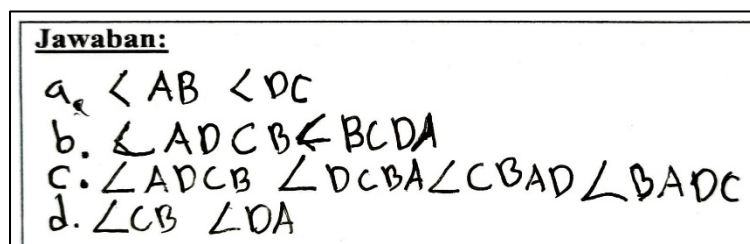 Jawaban:
a. < AB < DC
b. ∠ ADCB < BCDA
c. ∠ADCB ∠DCBA ∠CBAD ∠BADC
d. ∠CB ∠DA